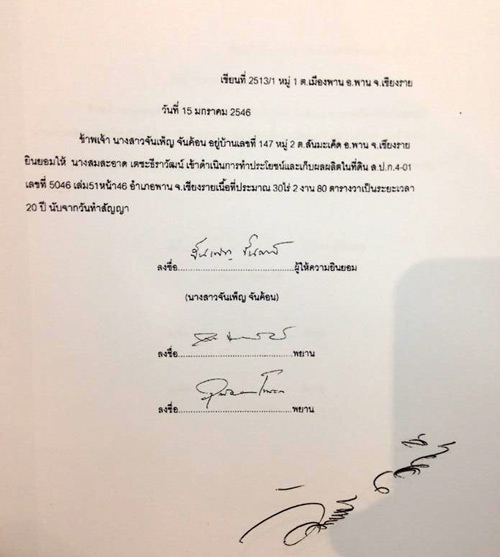 เขียนที่ 2513/1 หมู่ 1 ต.เมืองพาน อ.พาน จ.เชียงราย
วันที่ 15 มกราคม 2546
ข้าพเจ้า นางสาวจันเพ็ญ จันค้อน อยู่บ้านเลขที่ 147 หมู่ 2 ต.สันมะเค็ด อ.พาน จ.เชียงราย
ยินยอมให้ นางสมสะอาด เตชะธีราวัฒน์ เข้าดำเนินการทำประโยชน์และเก็บผลผลิตในที่ดิน ส.ป.ก.4-01
เลขที่ 5046 เล่ม51หน้า46 อำเภอพาน จ.เชียงรายเนื้อที่ประมาณ 30ไร่ 2 งาน 80 ตารางวาเป็นระยะเวลา
20 ปี นับจากวันทำสัญญา
ลงชื่อ...............................ผู้ให้ความยินยอม
(นางสาวจันเพ็ญ จันค้อน)
ลงชื่อ...............................พยาน
ลงชื่อ...............................พยาน